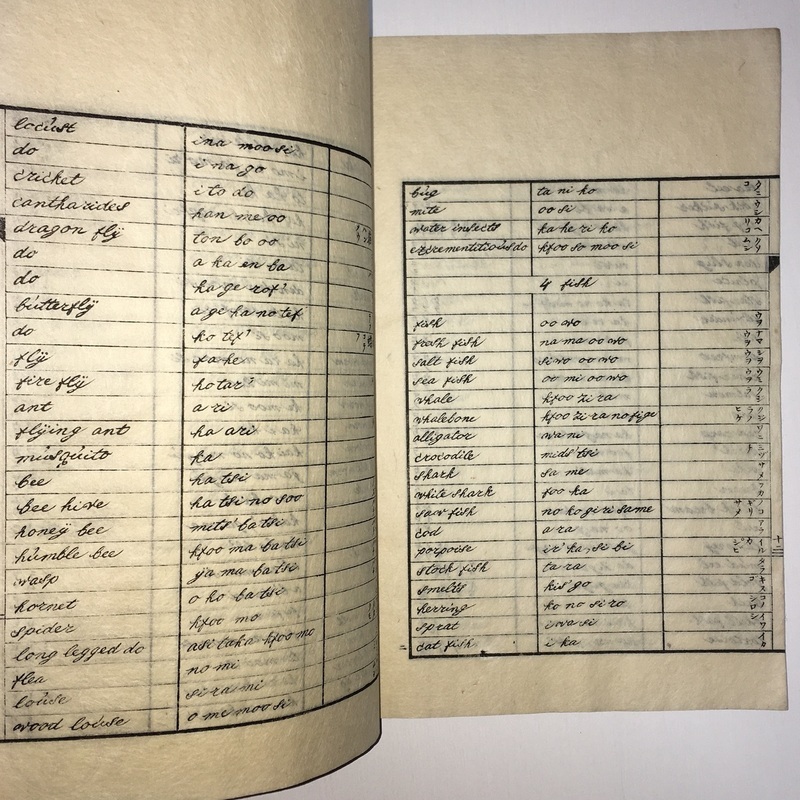 locust ina moo si
do i na go
cricket i to do
cantharides han me oo
dragon flÿ ton bo oo
do a ka en ba
do ka ge rof'
bútterflÿ a ge ha no tef
do ko tef'
flÿ fa he
fire flÿ ho tar'
ant a ri
flÿing ant ha ari
músquito ka
bee ha tsi
bee hive ha tsi no soo
honeÿ bee mits' ba tsi
húmble bee kfoo ma ba tsi
wasp ÿa ma ba tsi
hornet o ho ba tsi
spider kfoo mo
long legged do asi taka kfoo mo
flea no mi
loúse si ra mi
wood loúse o me moo si
búg ta ni ko
mite oo si
water insects ka he ri ko
excrementitioús do kfoo so moo si
4 fish
fish oo wo ウヲ
fresh fish na ma oo wo ナマウヲ
salt fish si wo oo wo シヲウヲ
sea fish oo mi oo wo ウミウヲ
whale kfoo zi ra クジラ
whalebone kfoo zi ra no fige クジラノヒゲ
alligator wa ni ワニ
crocodile mids' tsi
shark sa me サメ
while shark foo ka フカ
saw fish no ko gi ri same ノコギリサメ
cod a ra アラ
porpoise ir' ka, si bi イルカ シビ
stock fish ta ra タラ
smelts kis' go キスゴ
herring ko no si ro コノシロ
sprat i wa si イワシ
cat fish i ka イカ
十三